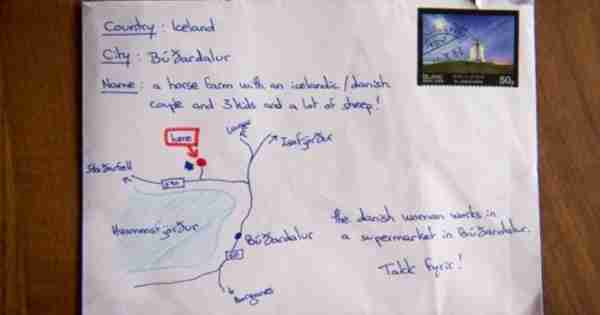 Country: Iceland
City: Búðardalur
Name: a horse farm with an icelandic/danish
couple and 3 kids and a lot of sheep!
ÍSLAND
50g
here
Ísafjörður
Hvammsfjörður
Búðardalur
Borgarnes
the danish woman works in
a supermarket in Búðardalur.
Takk fyrir!